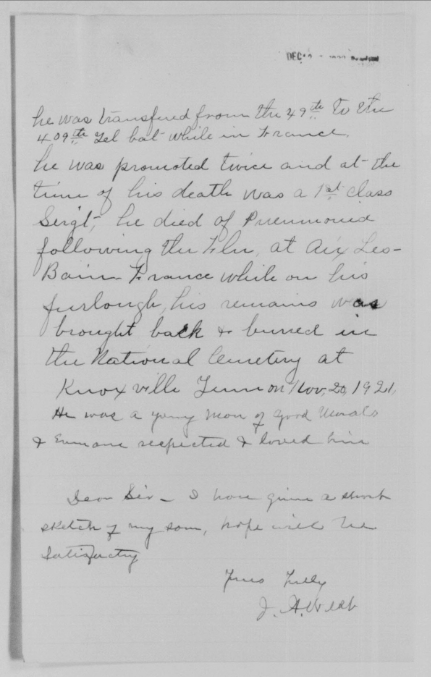 DEC
he was transfered from the 49th to the
409th Tel bat while in France.
he was promoted twice and at the
time of his death was a 1st class
Sergt, he died of Pneumonia
following the Flu, at Aix Les-
Bain France while on his
furlough, his remains was
brought back & buried in
the National Cemetery at
Knoxville Tenn on Nov. 20, 1921.
He was a young man of good Morals
& Everyone respected & loved him
Dear Sir - I have given a short
sketch of my son, hope will be
Satisfactry
Yours Truly
J. A. Webb